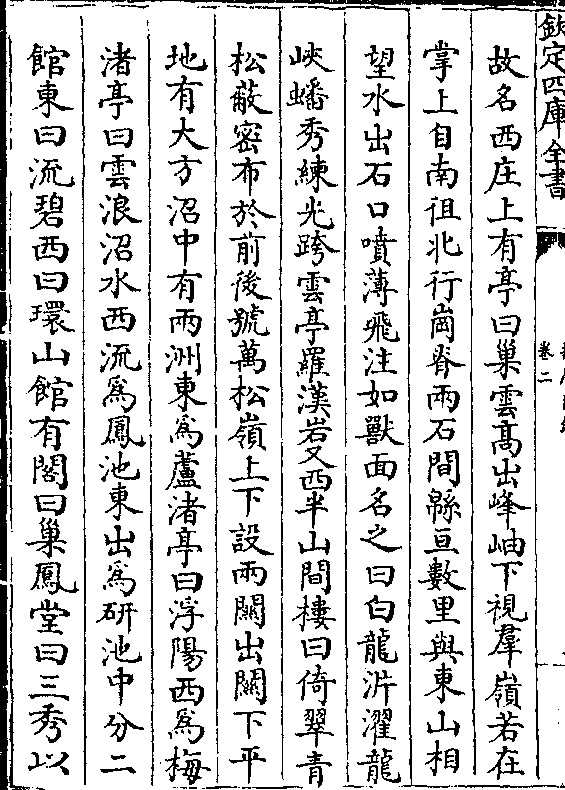 欽定四庫全書
卷二
故名西庄上有亭曰巢雲髙出峰岫下視羣嶺若在
掌上自南徂北行崗脊兩石間緜亘數里與東山相
望水出石口噴薄飛注如獸面名之曰白龍沜濯龍
峽蟠秀練光跨雲亭羅漢岩又西半山間樓曰倚翠青
松蔽密布於前後號萬松嶺上下設兩關出關下平
地有大方沼中有兩洲東為蘆渚亭曰浮陽西為梅
渚亭曰雲浪沼水西流為鳳池東出為研池中分二
館東曰流碧西曰環山館有閣曰巢鳳堂曰三秀以